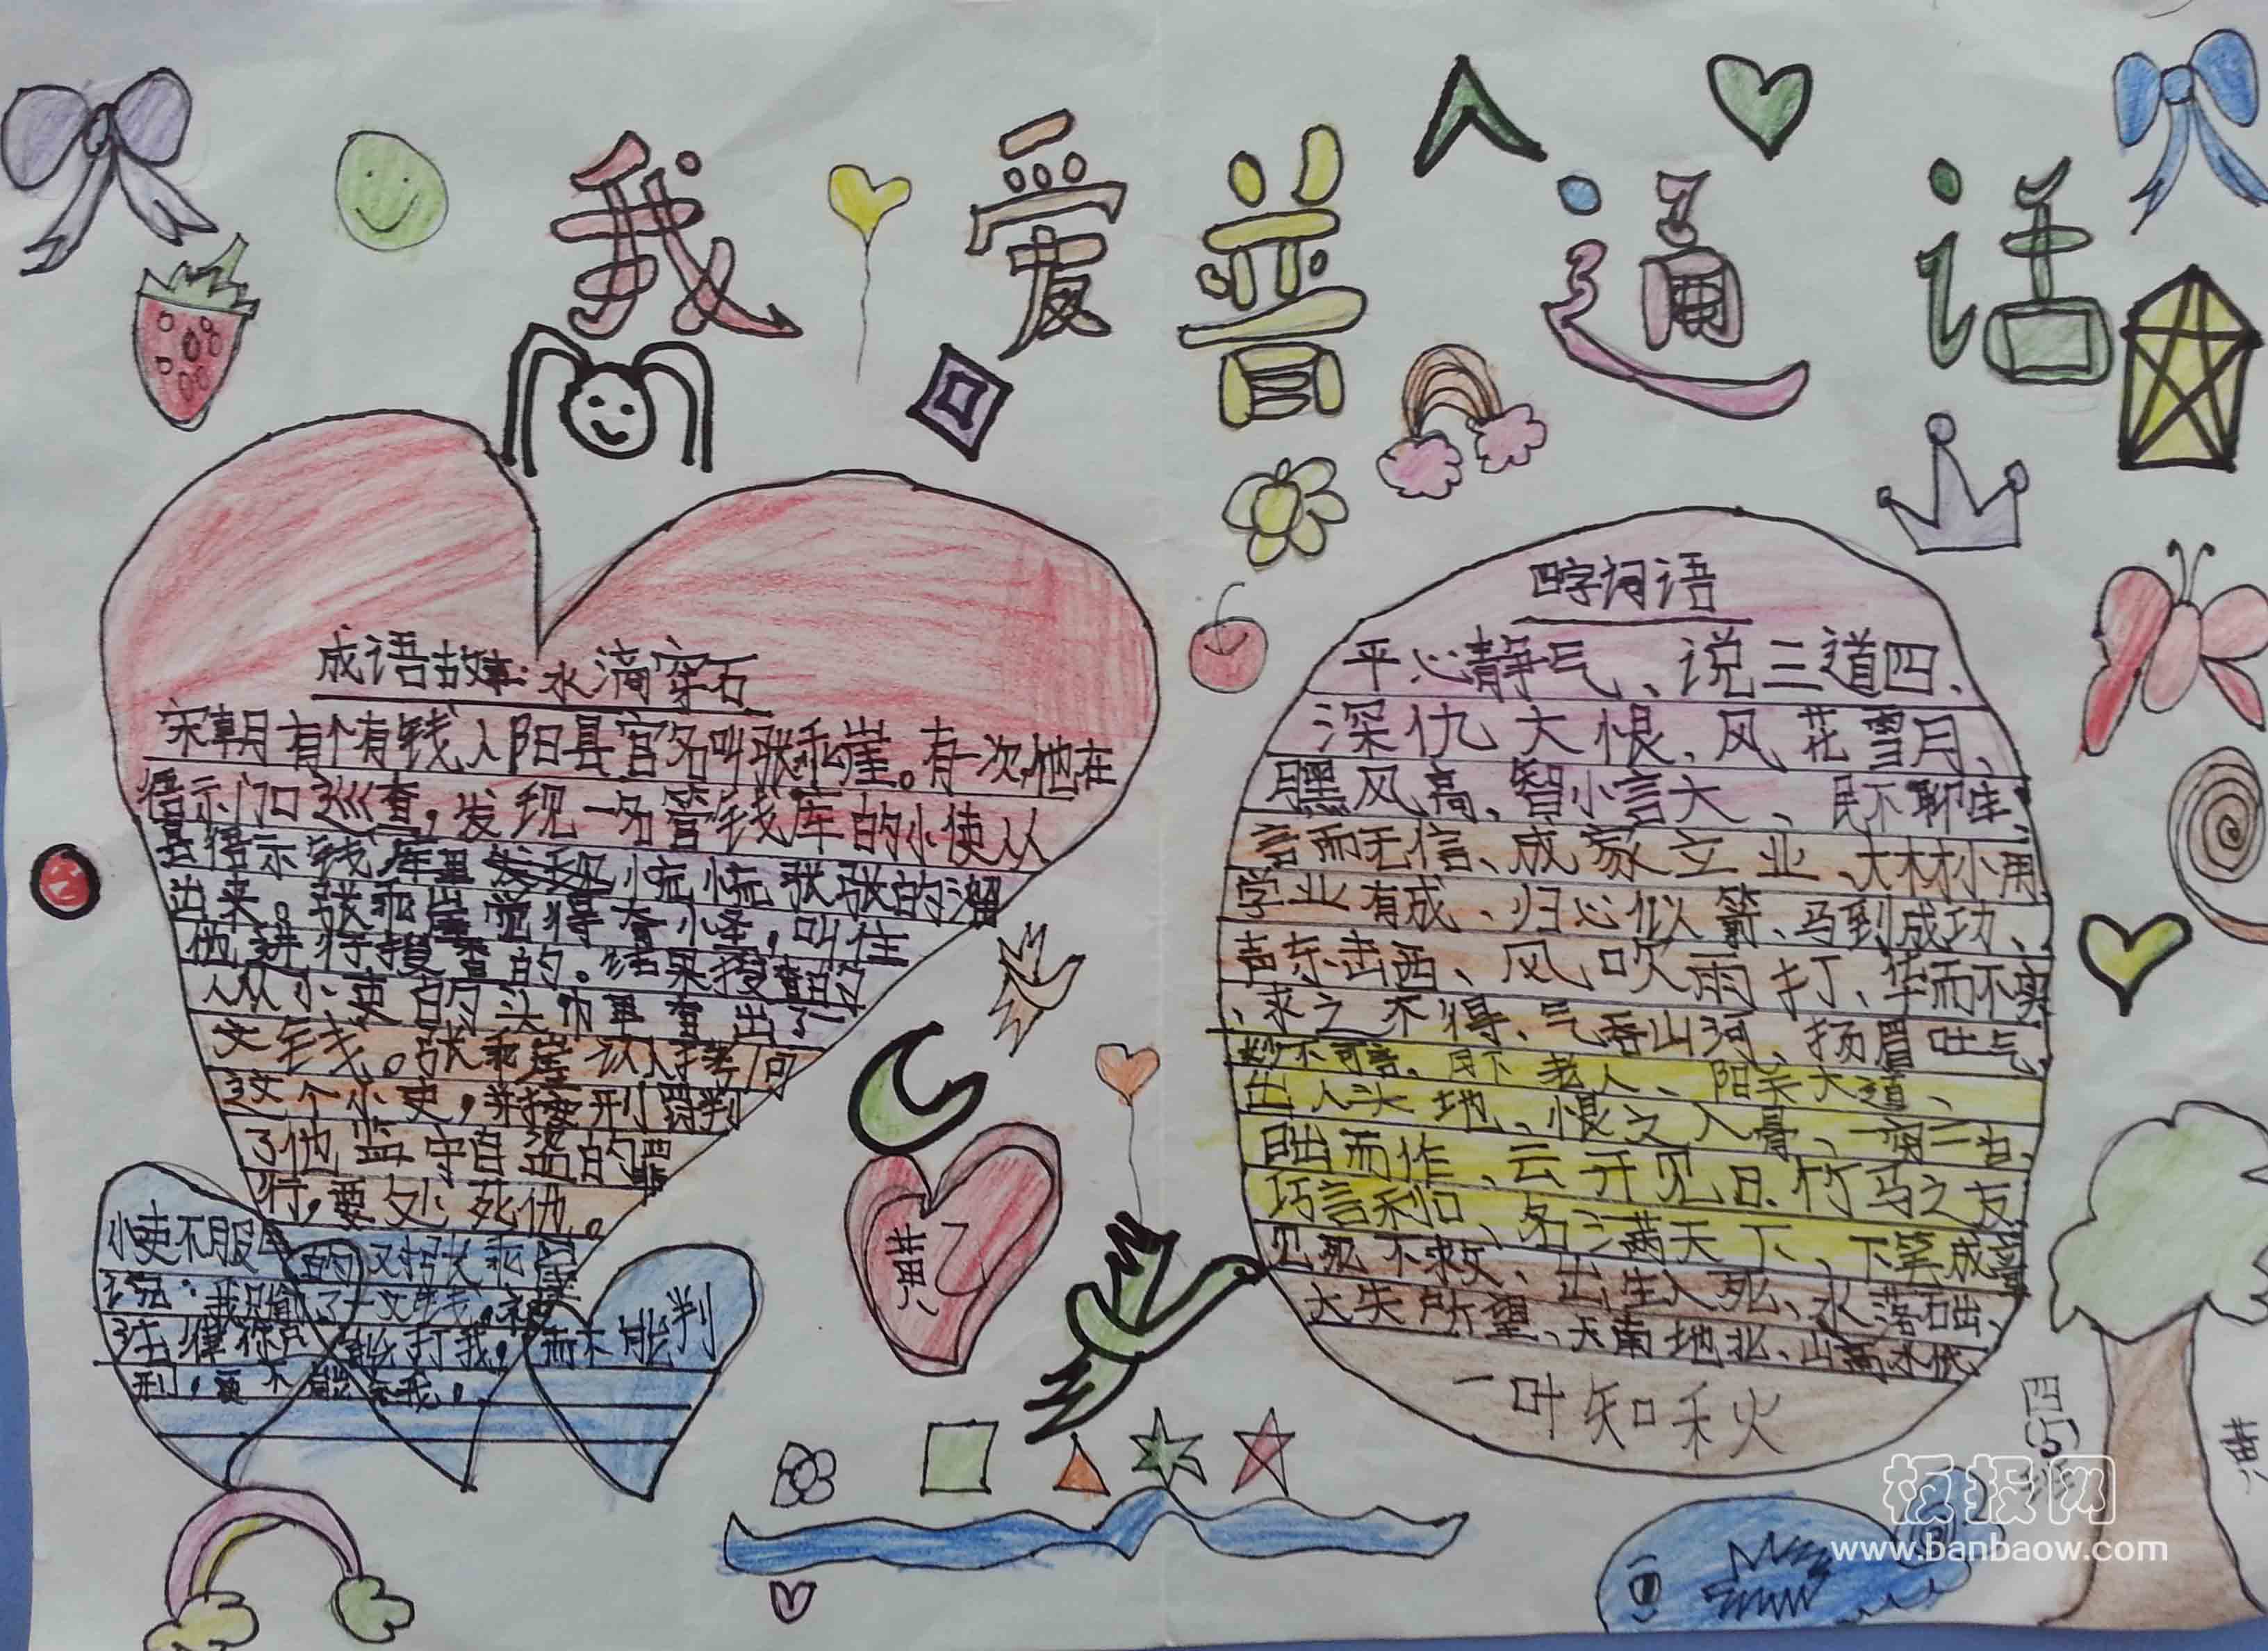 我爱普通话
成语故事:水滴穿石
宋朝有个有钱人阳县官名叫张乖崖。有一次,他在
门口巡查,发现一名管钱库的小使从
钱库里慌慌张张的溜
出来。张乖崖觉得奇怪,叫住
他进行搜查的。结果搜查的
人从小吏的头巾里查出了一
文钱。张乖崖认人拷问
这个小吏,并按刑罚判
了他监守自盗的罪
行,要处死他。
小吏不服气的又扬张乖崖
说:我只偷了一文钱,
法律你只能打我,而不能判
刑,更不能杀我。
四字词语
平心静气、说三道四、
深仇大恨、风花雪月、
月黑风高、智小言大、民不聊生、
言而无信、成家立业、大材小用
学业有成、归心似箭、马到成功、
声东击西、风吹雨打、华而不实
、求之不得、气吞山河、扬眉吐气、
妙不可言、月下老人、阳关大道、
出人头地、恨之入骨、一穷二白、
日出而作、云开见日、竹马之友
巧言利口、名满天下、下笔成章
见死不救、出生入死、水落石出、
大失所望、天南地北、山高水低
一叶知秋火
黄乙
四(5)班
黄
板报网
www.banbaow.com